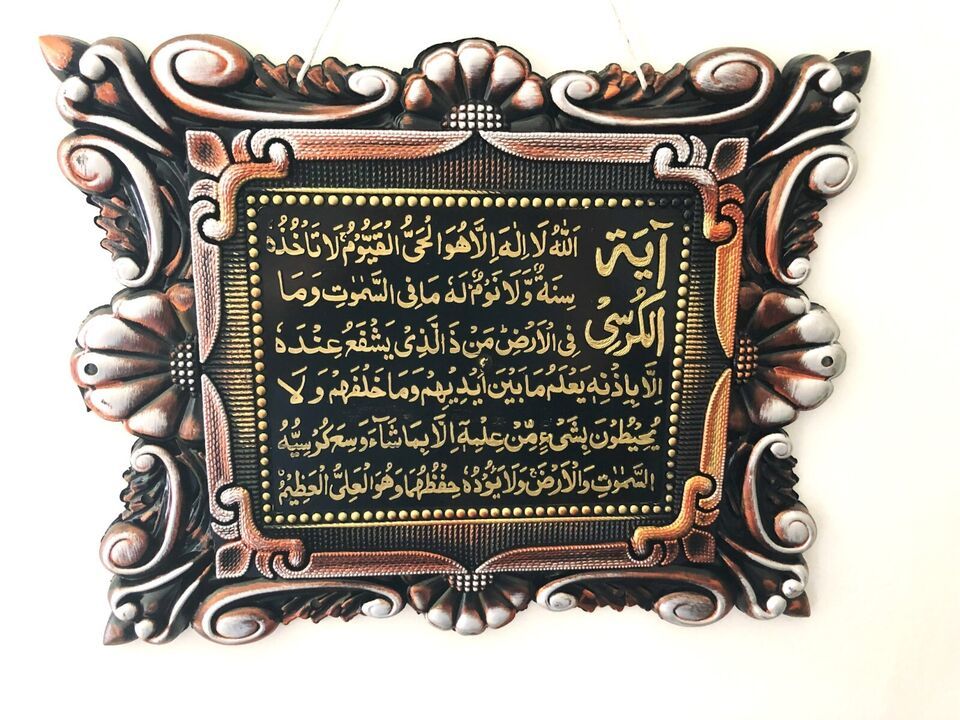 آية الكرسي
الله لا اله الا هو الحي القيوم لا تأخذه
سنة ولا نوم له ما في السموت وما
في الارض من ذا الذي يشفع عنده
الا باذنه يعلم ما بين أيديهم وما خلفهم ولا
يحيطون بشيء من علمه الا بما شاء وسع كرسيه
السموت والارض ولا يؤده حفظهما وهو العلي العظيم